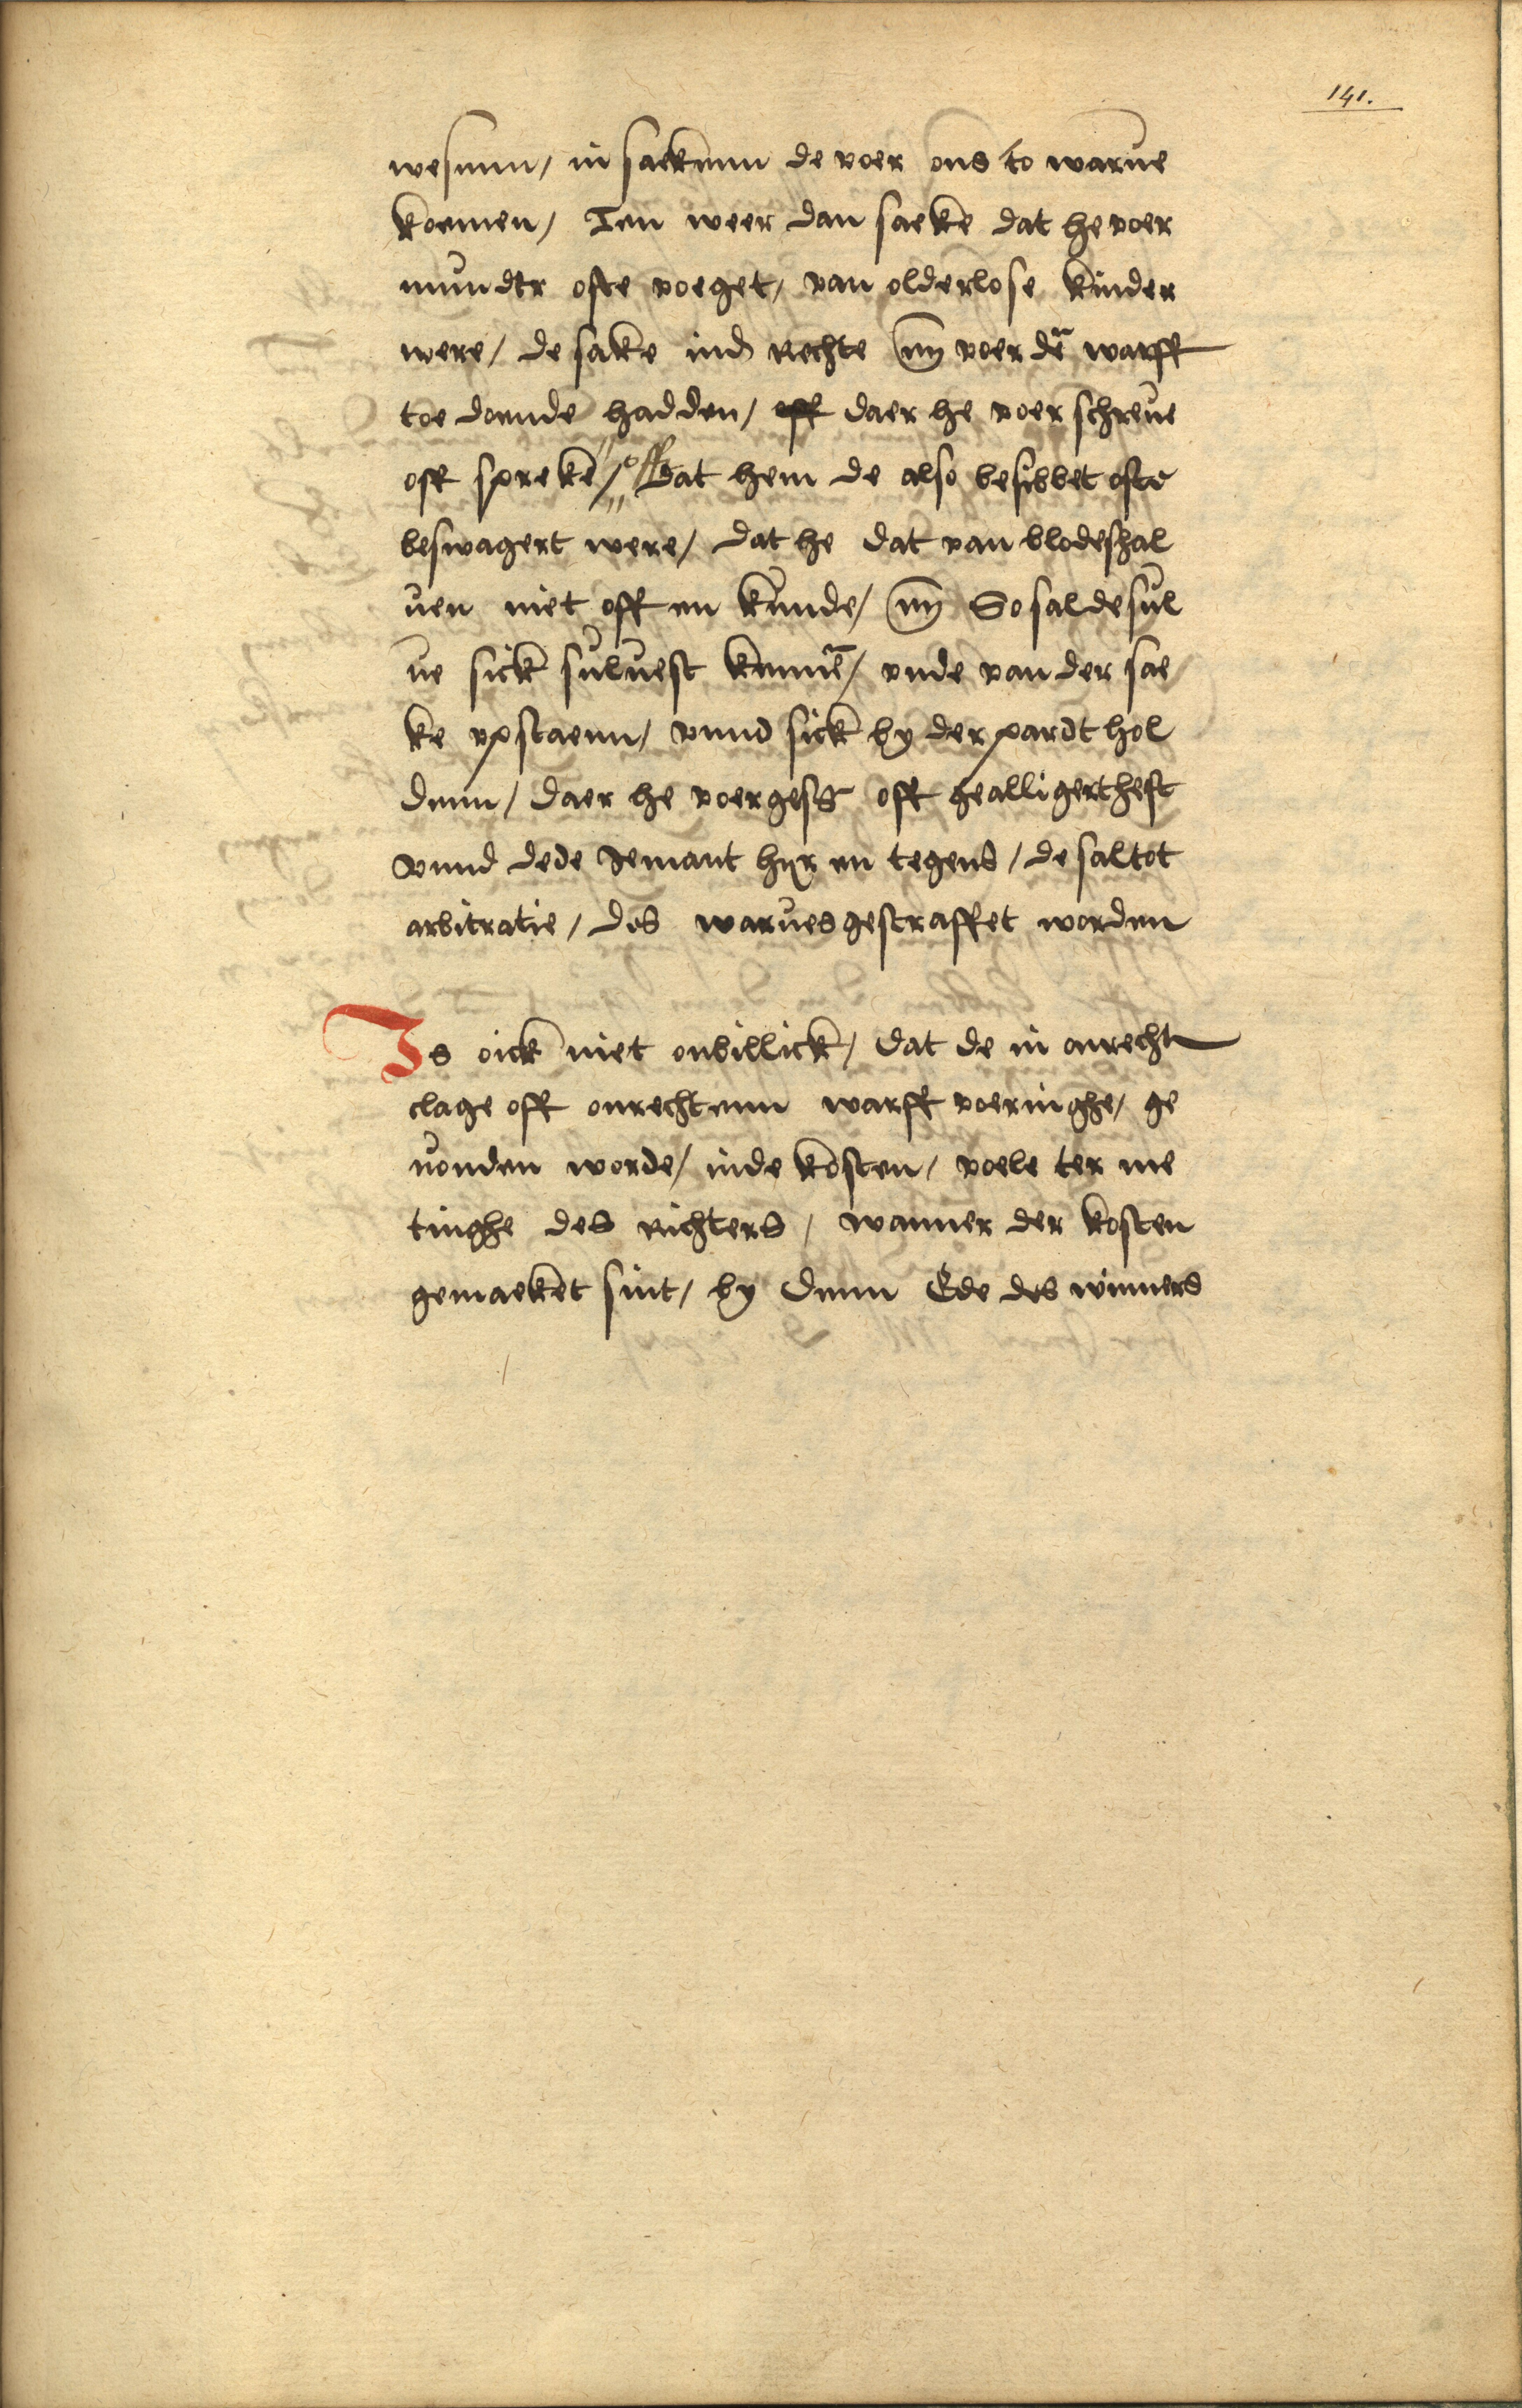 141.
wesenn, in saekenn de voer ons to warue
koemen, Ten weer dan saeke dat he voer
mundtr ofte voeget, van olderlose kinder
were, de sake ind Rechte voer dē warff
toe doende hadden, off daer he voer schreue
oft spreke, off Dat hem de also besibbet ofte
beswagert were, dat he dat van blodeshal
uen niet off en kunde, So sal de sul
ue sick suluest kennē, vnde van der sae
ke vpstaenn, vnnd sick by der pardt hol
denn, daer he voergess oft gealligert heft
Vnnd dede Jemant hyr en tegens, de sal tot
arbitratie, des warues gestraffet worden
Is oick niet onbillick, dat de in onrecht
clage oft onrechtenn warff voeringhe, ge
uonden worde, in de kosten, voele ter me
tinghe des Richters, wanner der kosten
gemaeket sint, by denn Ede des winners